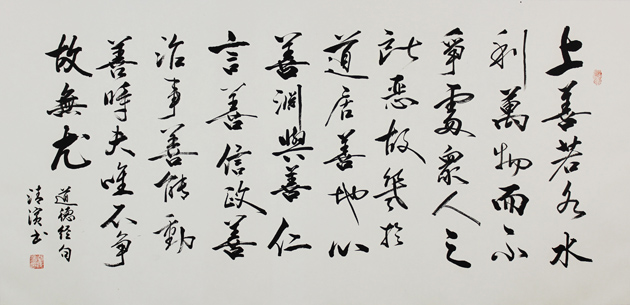 上善若水水
利萬物而不
爭處眾人之
所惡故幾於
道居善地心
善淵與善仁
言善信政善
治事善能動
善時夫唯不爭
故無尤
道德经句
清滨书